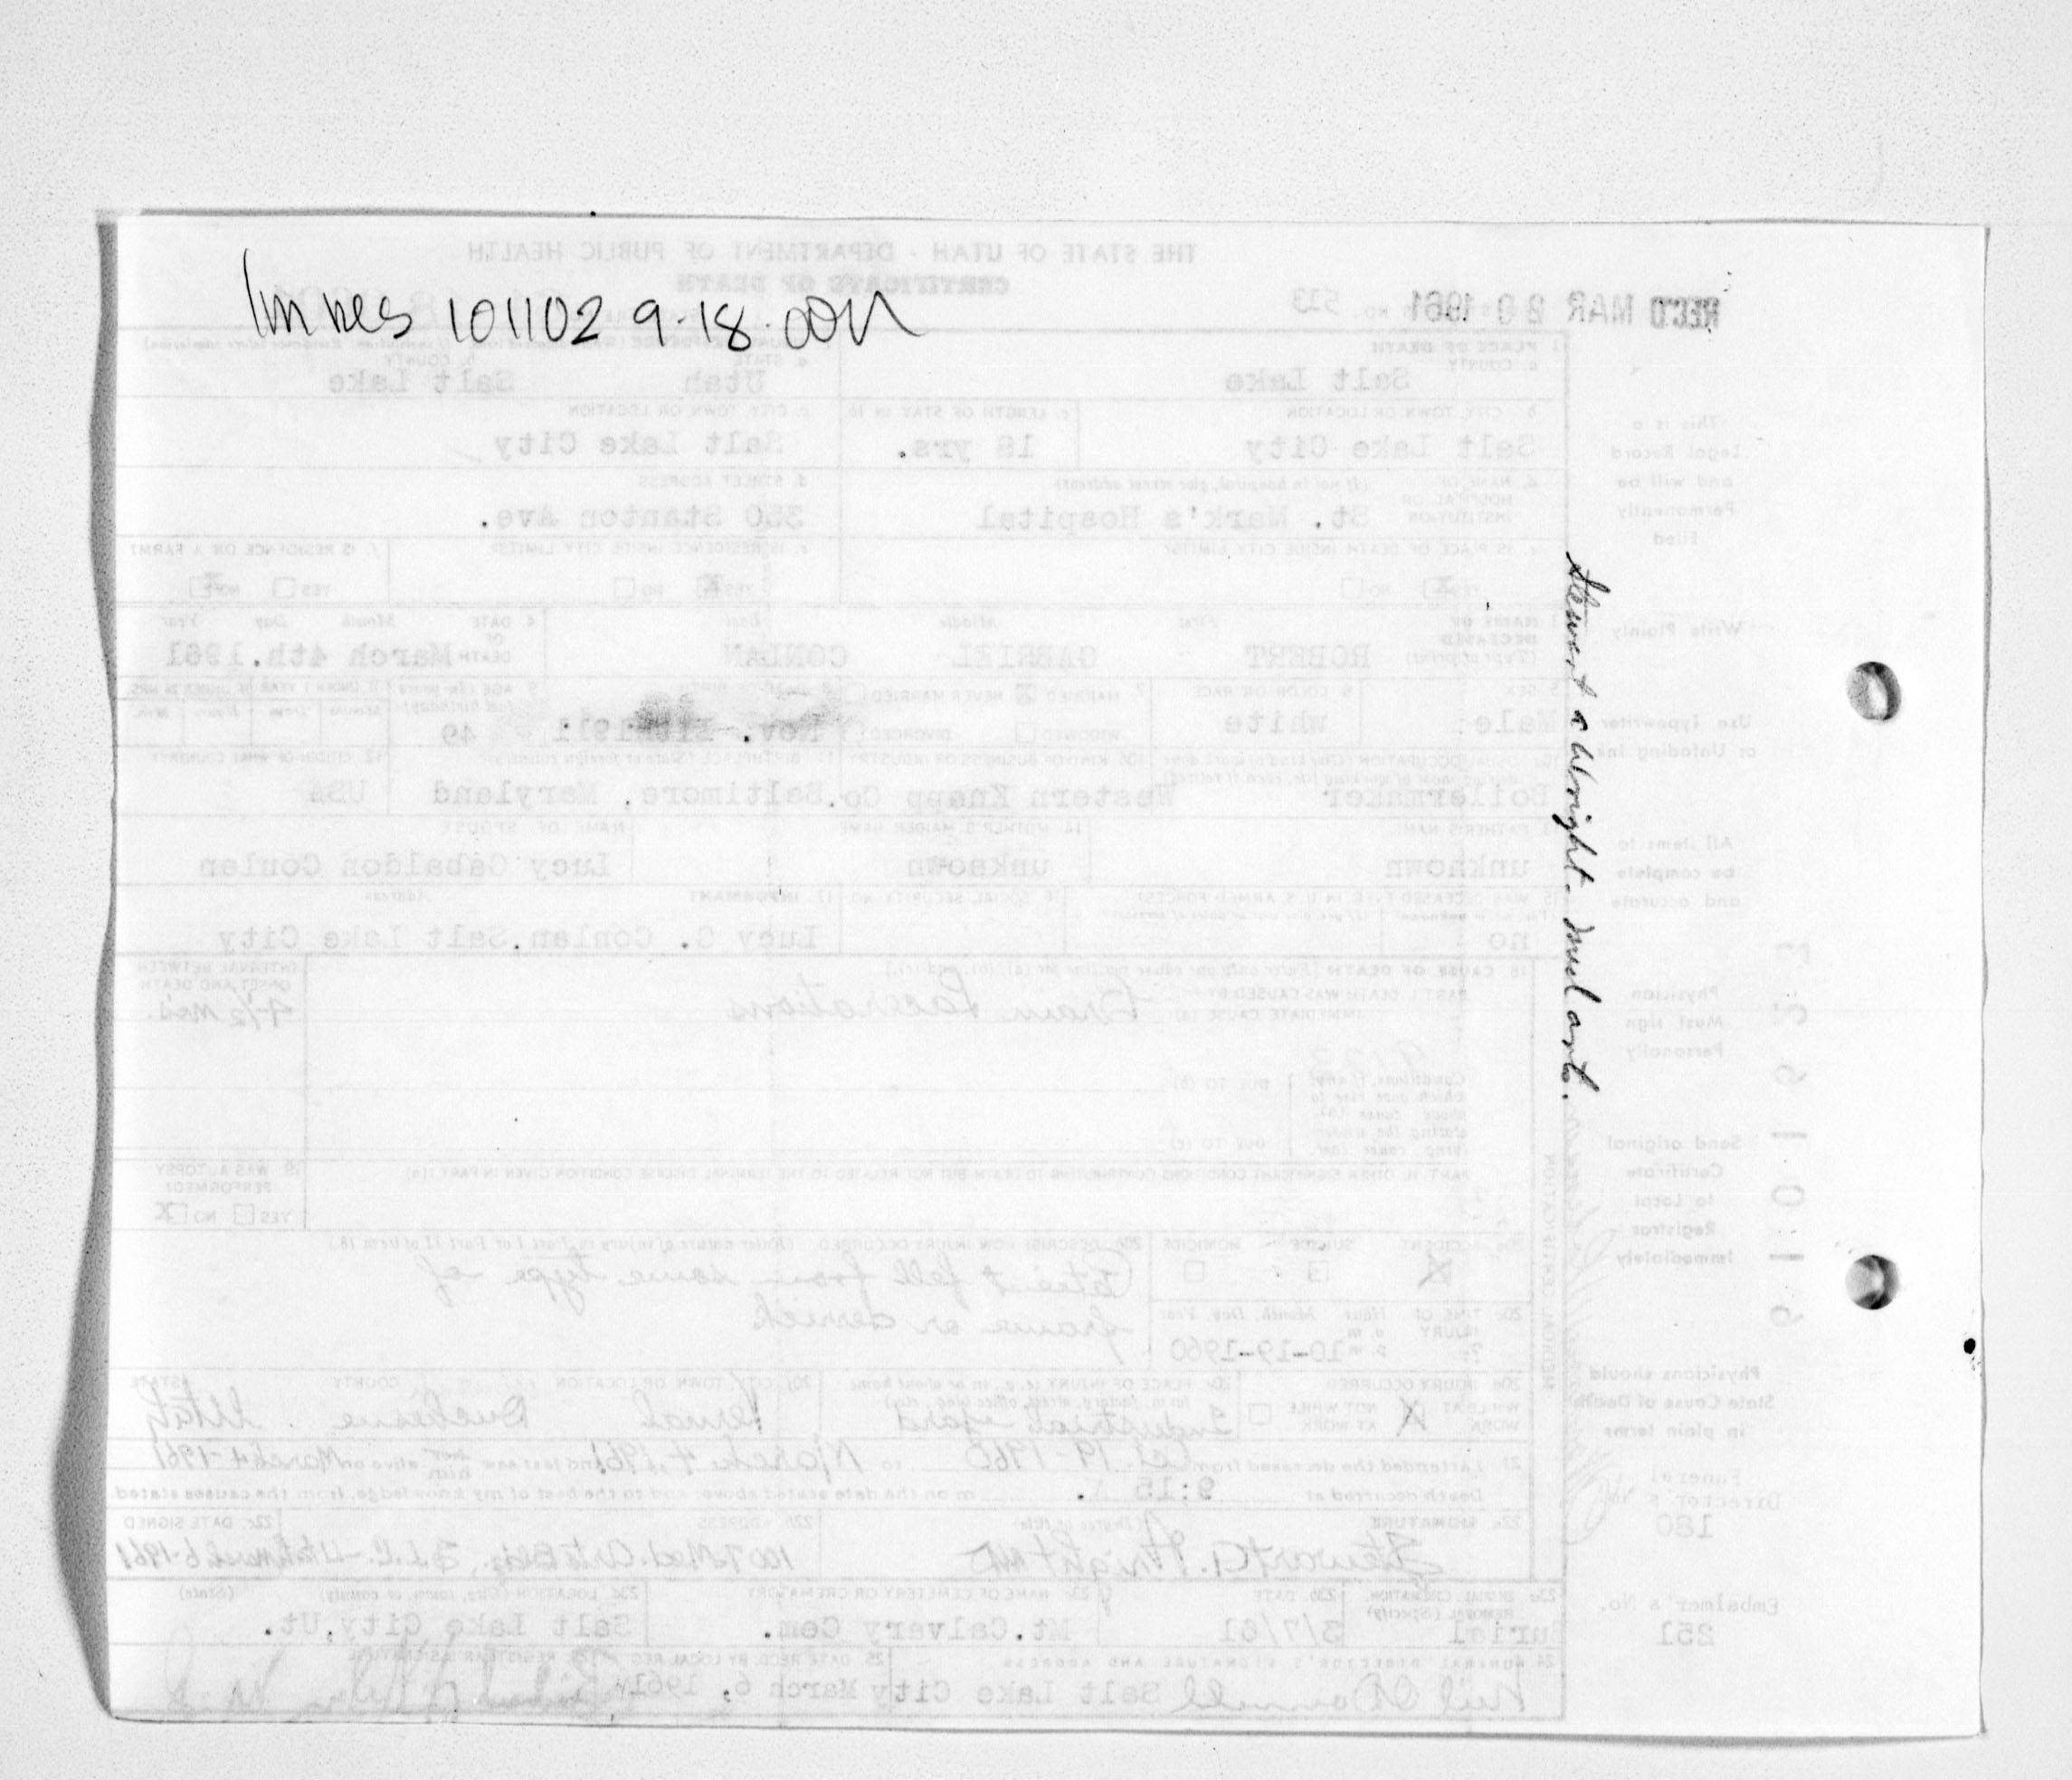 101102 9-18-00
Stewart A Wright - Med arts.
REC'D MAR 20 1961
THE STATE OF UTAH - DEPARTMENT OF PUBLIC HEALTH
CERTIFICATE OF DEATH
513
1. PLACE OF DEATH
a. COUNTY
Salt Lake
a. STATE
Utah
b. COUNTY
Salt Lake
b. CITY, TOWN OR LOCATION
Salt Lake City
c. LENGTH OF STAY IN 1b
18 yrs.
c. CITY, TOWN OR LOCATION
Salt Lake City
d. NAME OF HOSPITAL OR INSTITUTION
(If not in hospital, give street address)
St. Mark's Hospital
d. STREET ADDRESS
350 Stanton Ave.
e. IS PLACE OF DEATH INSIDE CITY LIMITS?
YES X NO
e. IS RESIDENCE INSIDE CITY LIMITS?
YES X NO
f. IS RESIDENCE ON A FARM?
YES NO X
3. NAME OF DECEASED
(Type or print)
First Middle Last
ROBERT GABRIEL CONLAN
4. DATE OF DEATH
Month Day Year
March 4th, 1961
5. SEX
Male
6. COLOR OR RACE
white
7. MARRIED X NEVER MARRIED
WIDOWED DIVORCED
Nov.
9. AGE (In years last birthday)
49
10b. KIND OF BUSINESS OR INDUSTRY
11. BIRTHPLACE (State or foreign country)
12. CITIZEN OF WHAT COUNTRY
Boilermaker
Western Knapp Co.
Baltimore, Maryland
USA
13. FATHER'S NAME
unknown
14. MOTHER'S MAIDEN NAME
unknown
NAME OF SPOUSE
Lucy Gabaldon Conlan
15. WAS DECEASED EVER IN U.S. ARMED FORCES?
no
16. SOCIAL SECURITY NO.
17. INFORMANT
Address
Lucy G. Conlan, Salt Lake City
18. CAUSE OF DEATH
PART I. DEATH WAS CAUSED BY:
IMMEDIATE CAUSE (a)
Brain Lacerations
INTERVAL BETWEEN ONSET AND DEATH
4 1/2 mos.
Conditions, if any, which gave rise to above cause (a), stating the underlying cause last
DUE TO (b)
DUE TO (c)
PART II. OTHER SIGNIFICANT CONDITIONS CONTRIBUTING TO DEATH BUT NOT RELATED TO THE TERMINAL DISEASE CONDITION GIVEN IN PART I (a)
19. WAS AUTOPSY PERFORMED?
YES NO X
20a. ACCIDENT SUICIDE HOMICIDE
X
20b. DESCRIBE HOW INJURY OCCURRED (Enter nature of injury in Part I or Part II of item 18.)
Patient fell from some type of
frame or derrick
20c. TIME OF INJURY
Hour Month, Day, Year
a.m.
p.m.
? 10-19-1960
20d. INJURY OCCURRED
WHILE AT WORK X NOT WHILE AT WORK
20e. PLACE OF INJURY (e.g., in or about home, farm, factory, street, office bldg., etc.)
Industrial yard
20f. CITY, TOWN OR LOCATION COUNTY STATE
Vernal Duchesne Utah
21. I attended the deceased from Oct. 19-1960, to March 4, 1961 and last saw him alive on March 4-1961
Death occurred at 9:15 m on the date stated above; and to the best of my knowledge, from the causes stated.
22a. SIGNATURE (Degree or title)
Stewart A. Wright MD
22b. ADDRESS
1007 Med. Arts Bldg., S.L.C.-Utah
22c. DATE SIGNED
March 6-1961
23a. BURIAL, CREMATION, REMOVAL (Specify)
Burial
23b. DATE
3/7/61
23c. NAME OF CEMETERY OR CREMATORY
Mt. Calvary Cem.
23d. LOCATION (City, town, or county) (State)
Salt Lake City, Ut.
24. FUNERAL DIRECTOR'S SIGNATURE AND ADDRESS
Neil O'Donnell Salt Lake City
25. DATE RECD. BY LOCAL REG.
March 6, 1961
REGISTRAR'S SIGNATURE
MEDICAL CERTIFICATION
This is a
Legal Record
and will be
Permanently
Filed
Write Plainly
Use Typewriter
or Unfading Ink
All items to
be complete
and accurate
Physician
Must sign
Personally
Send original
Certificate
to Local
Registrar
Immediately
Physicians should
State Cause of Death
in plain terms
Funeral
Director's No.
180
Embalmer's No.
251